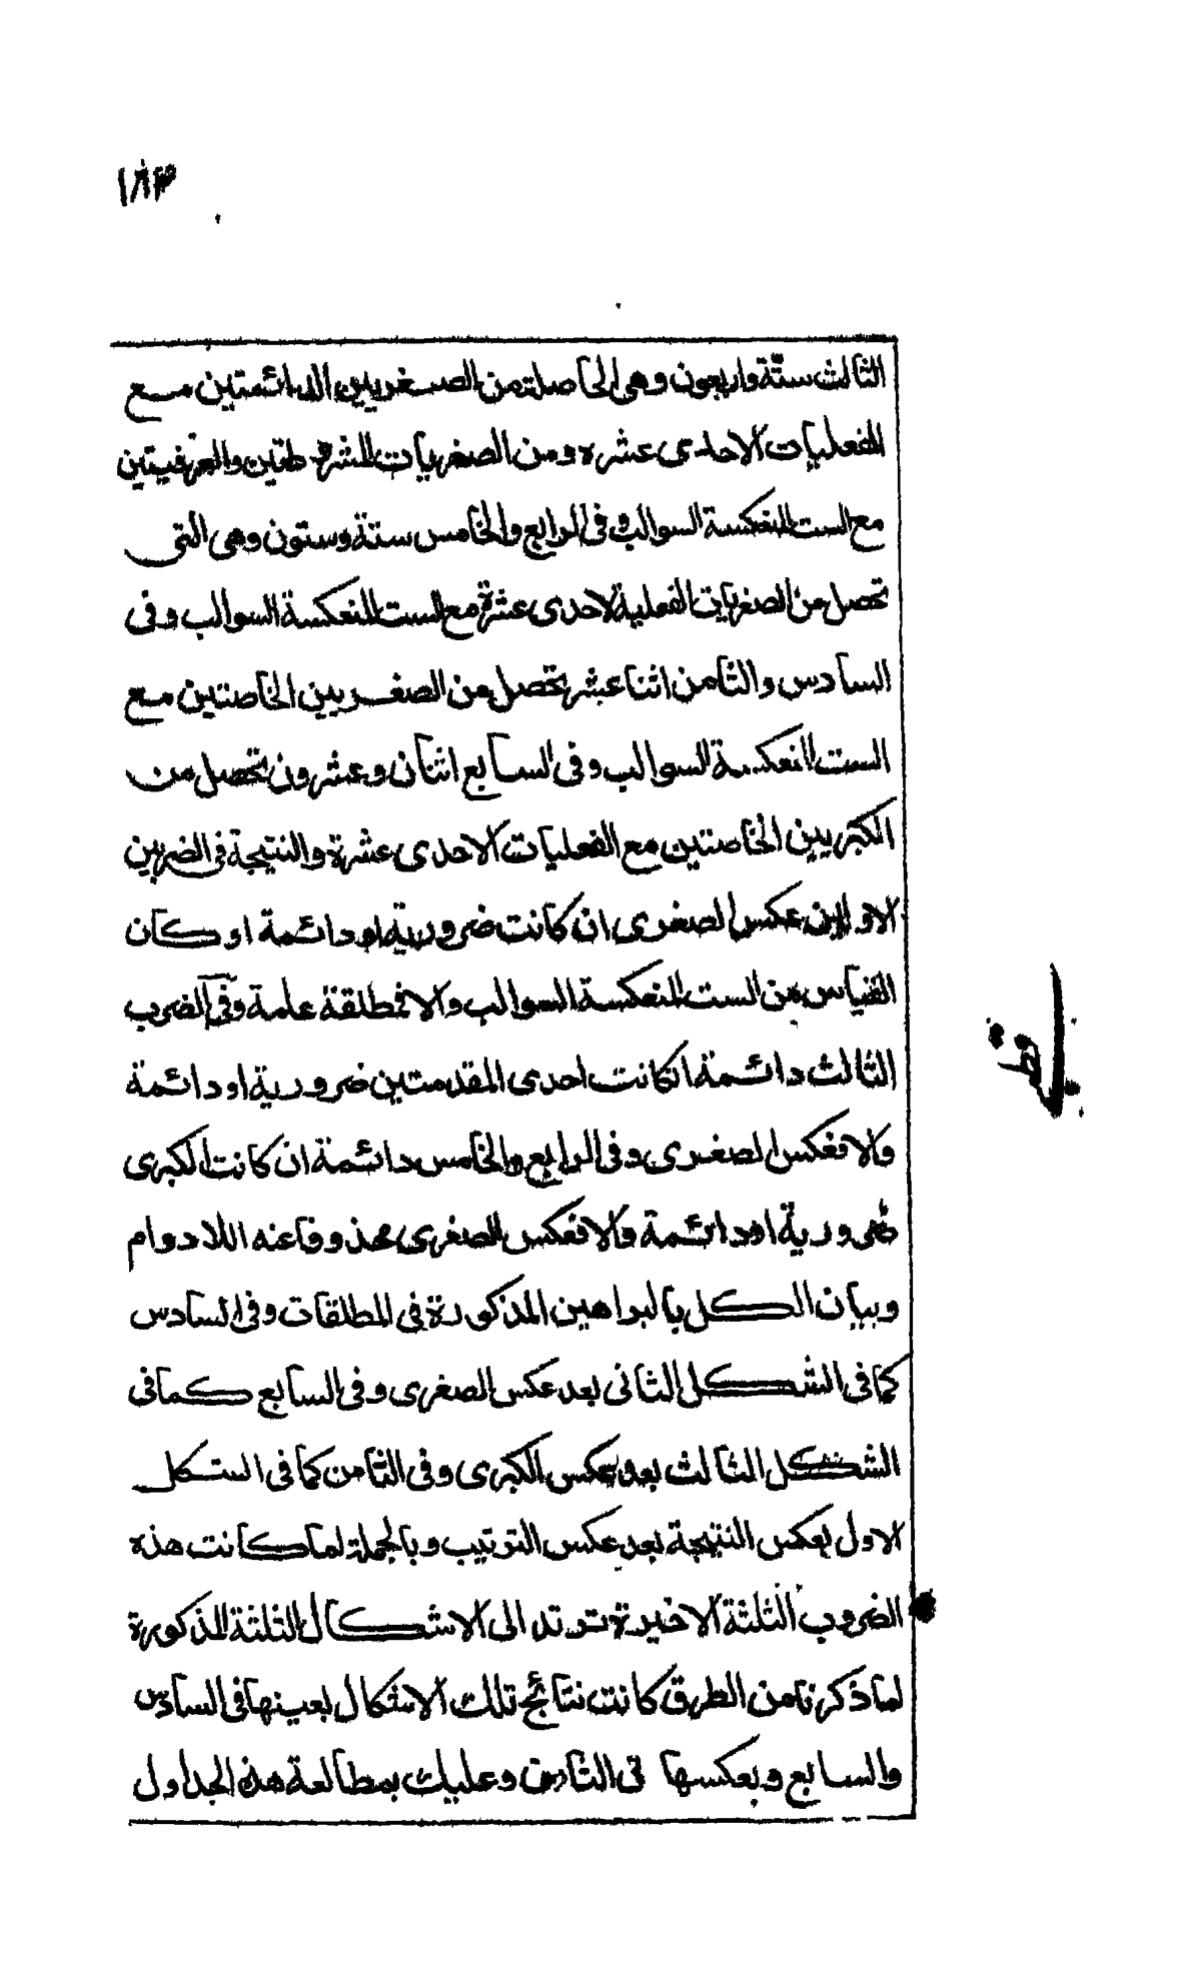 ١٨٣
الثالث ستّة واربعون وهى الحاصلة من الصغريين الدائمتين مع
الفعليات الاحدى عشره ومن الصغريات المشروطتين والعرفيتين
مع الست المنعكسة السوالب وفى الرابع والخامس ستة وستون وهى التى
تحصل من الصغريات الفعلية الاحدى عشرة مع الست المنعكسة السوالب وفى
السادس والثامن اثنا عشر تحصل من الصغريين الخاصتين مع
الست المنعكسة السوالب وفى السابع اثنان وعشرون تحصل من
الكبريين الخاصتين مع الفعليات الاحدى عشرة والنتيجة فى الضربين
الاولين عكس الصغرى ان كانت ضرورية او دائمة او كان
القياس من الست المنعكسة السوالب والا فمطلقة عامة وفى الضرب
الثالث دائمة ان كانت احدى المقدمتين ضرورية او دائمة
والا فعكس الصغرى وفى الرابع والخامس دائمة ان كانت الكبرى
ضرورية او دائمة والا فعكس الصغرى محذوفا عنه اللادوام
وبيان الكل بالبراهين المذكورة فى المطلقات وفى السادس
كما فى الشكل الثانى بعد عكس الصغرى وفى السابع كما فى
الشكل الثالث بعد عكس الكبرى وفى الثامن كما فى الشكل
الاول بعكس النتيجة بعد عكس الترتيب وبالجملة لما كانت هذه
الضروب الثلثة الاخيرة ترتد الى الاشكال الثلثة المذكورة
لما ذكرنا من الطرق كانت نتائج تلك الاشكال بعينها فى السادس
والسابع وبعكسها فى الثامن وعليك بمطالعة هذه الجداول